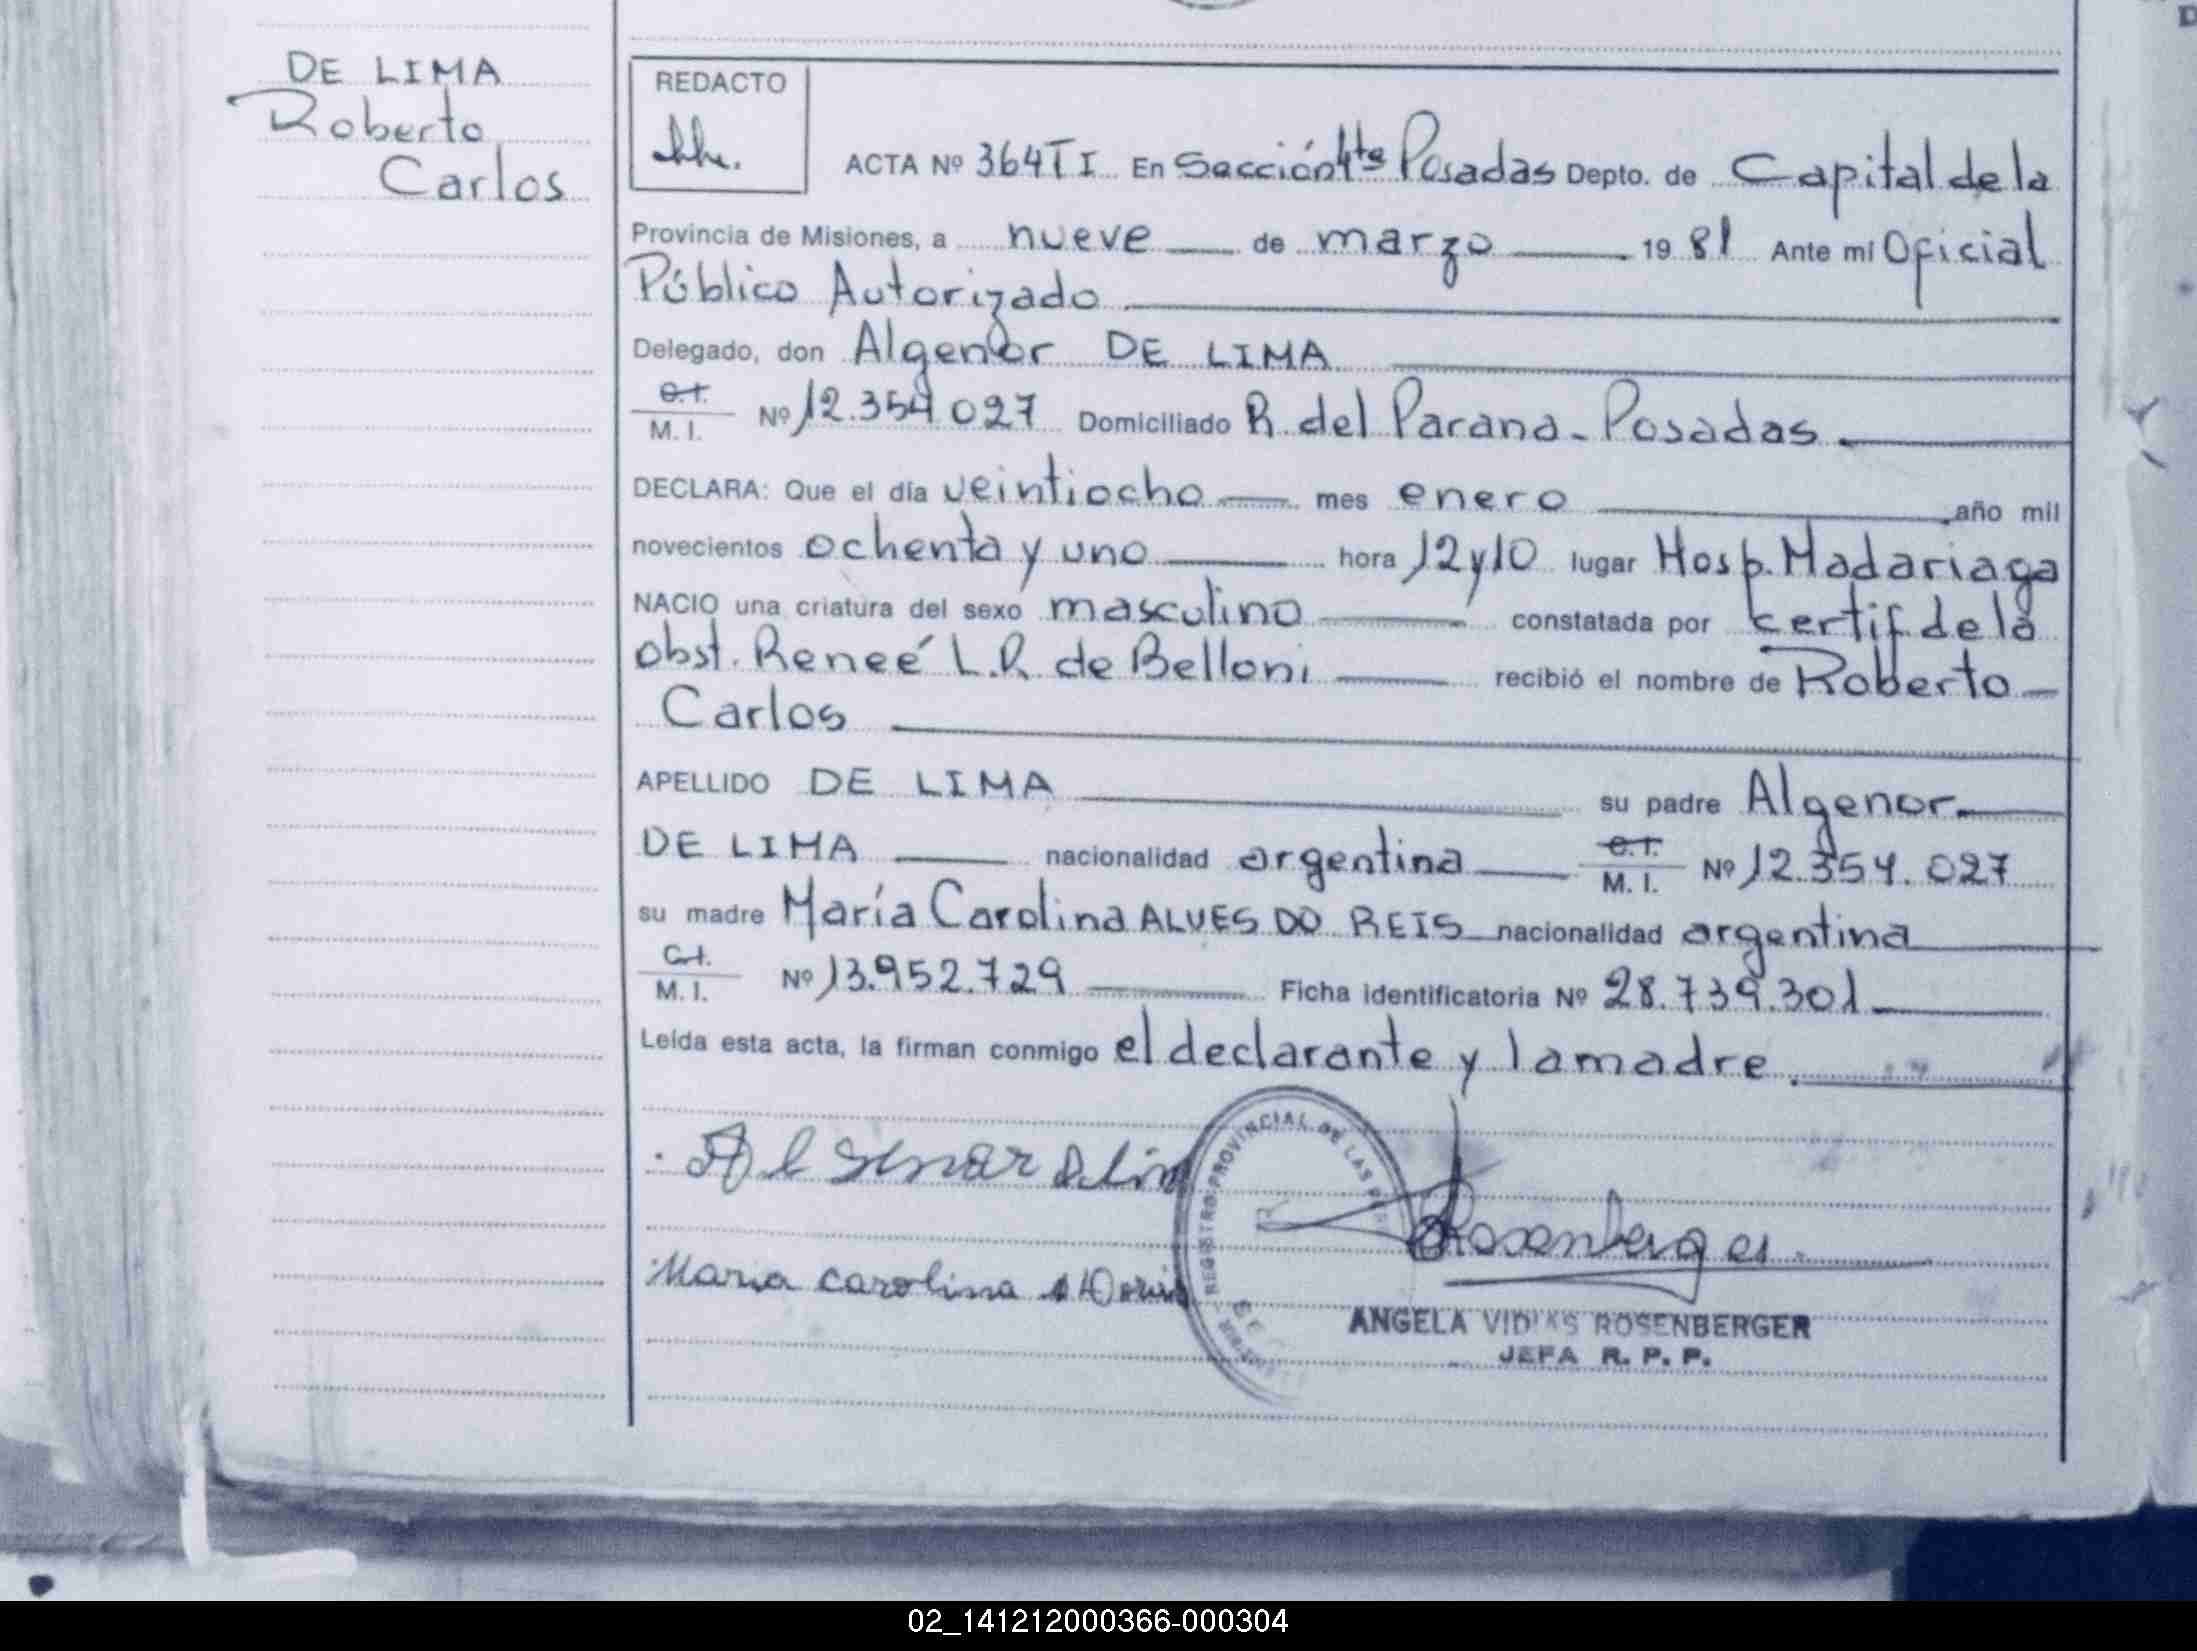 DE LIMA
Roberto
Carlos
REDACTO
ACTA Nº 364 T I En Sección 4ta Posadas Depto. de Capital de la
Provincia de Misiones, a nueve de marzo 1981 Ante mi Oficial
Público Autorizado
Delegado, don Algenor DE LIMA
C.I.
M. I. Nº 12.354.027 Domiciliado R. del Parana - Posadas
DECLARA: Que el día veintiocho mes enero año mil
novecientos ochenta y uno hora 12 y 10 lugar Hosp. Madariaga
NACIO una criatura del sexo masculino constatada por certif. de la
obst. Reneé L.R. de Belloni recibió el nombre de Roberto
Carlos
APELLIDO DE LIMA su padre Algenor
DE LIMA nacionalidad argentina C.I.
M. I. Nº 12.354.027
su madre María Carolina ALVES DO REIS nacionalidad argentina
C.I.
M. I. Nº 13.952.729 Ficha identificatoria Nº 28.739.301
Leída esta acta, la firman conmigo el declarante y la madre.
REGISTRO PROVINCIAL DE LAS
Maria carolina
Rosenberger
ANGELA VIDIAS ROSENBERGER
JEFA R. P. P.
02_141212000366-000304